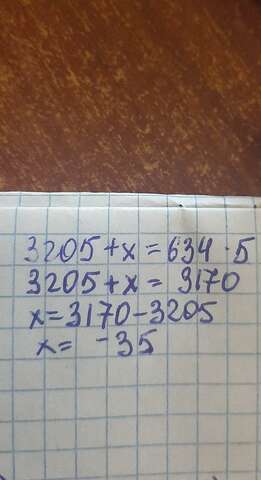 3205+x=634·5
3205+x=3170
x=3170-3205
x= -35